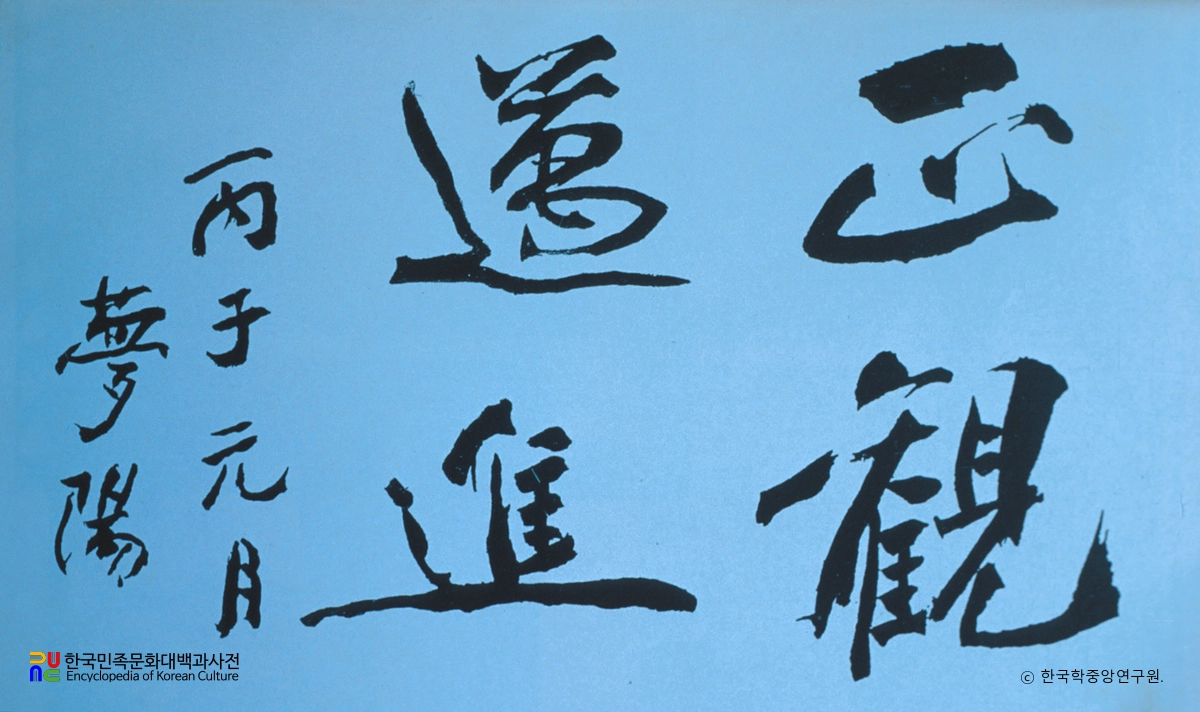 正観
邁進
丙子元月
夢陽
한국민족문화대백과사전
Encyclopedia of Korean Culture
ⓒ 한국학중앙연구원.